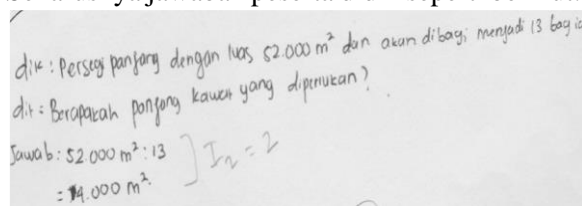 dik : Persegi panjang dengan luas 52.000 m² dan akan dibagi menjadi 13 bagia
dit : Berapakah panjang kawat yang diperlukan?
Jawab : 52.000 m² : 13 ] I₂ = 2
= 14.000 m².